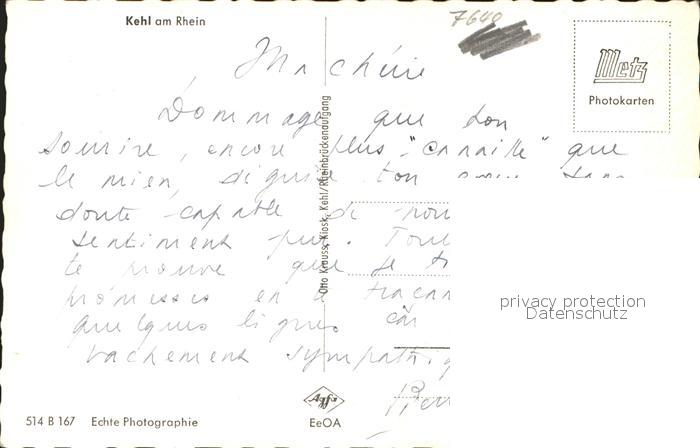 Kehl am Rhein
7640
Metz
Photokarten
Ma chérie
Dommage que ton
sourire, encore plus "canaille" que
le mien, déguise ton cœur sans
doute capable de
sentiment pur.
te prouve que je
promesses en
quelques lignes car
vachement
Otto Krauss, Kiosk, Kehl/Rheinbrückenaufgang
privacy protection
Datenschutz
Agfa
514 B 167 Echte Photographie
EeOA